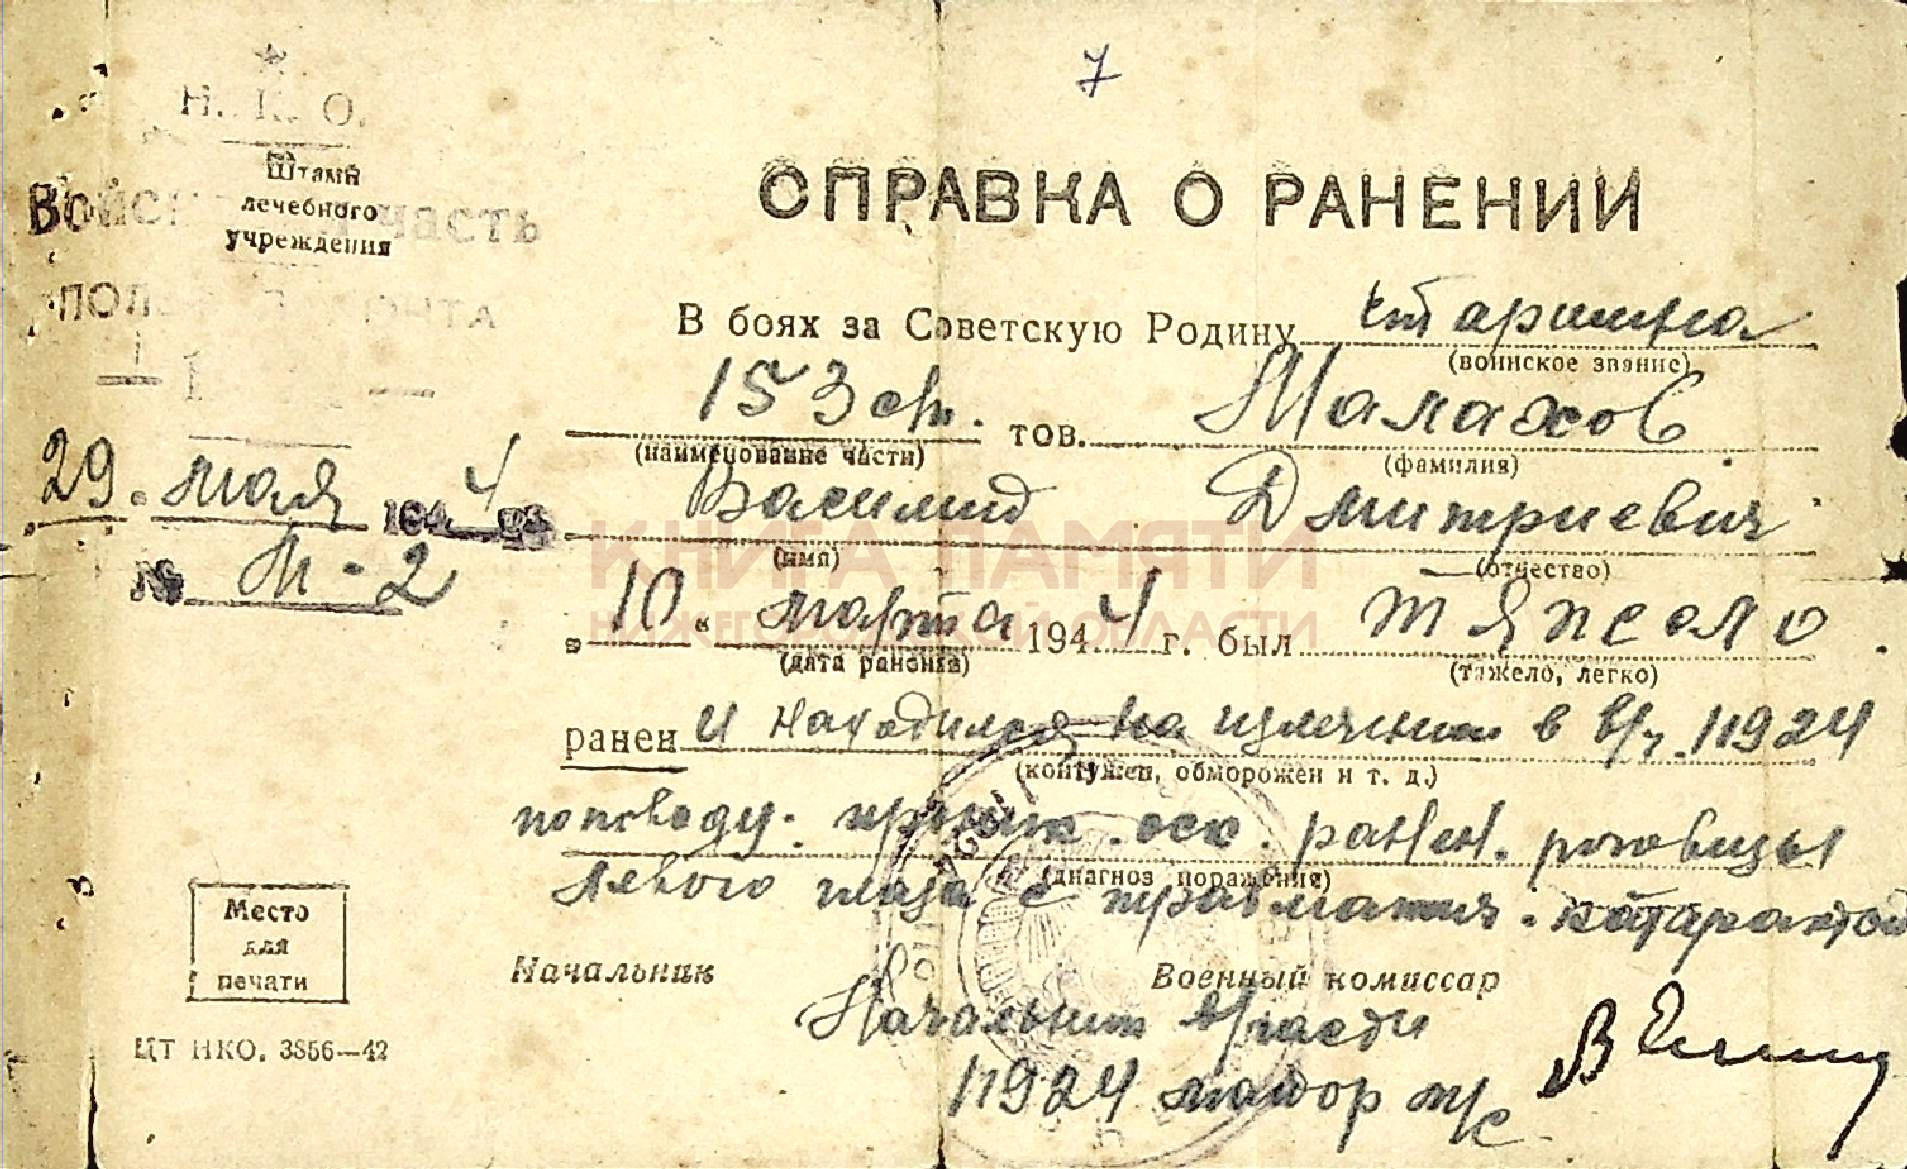 7
Н. К. О.
Штамп
лечебного
учреждения
Войсковая часть
ПОЛЕВАЯ ПОЧТА
29. мая 1944 г.
№ М-2
СПРАВКА О РАНЕНИИ
В боях за Советскую Родину старшина
(воинское звание)
153 сп. тов. Малахов
(наименование части) (фамилия)
Василий Дмитриевич
(имя) (отчество)
КНИГА ПАМЯТИ
НИЖЕГОРОДСКОЙ ОБЛАСТИ
„10" марта 1944 г. был тяжело.
(дата ранения) (тяжело, легко)
ранен и находился на излечении в в/ч. 11924
(контужен, обморожен и т. д.)
по поводу. проник. оск. ранен. роговицы
(диагноз поражения)
левого глаза с травматич. катарактой
Начальник Военный комиссар
Начальник в/части
11924 майор м/с
Место
для
печати
ЦТ НКО. 3856—42